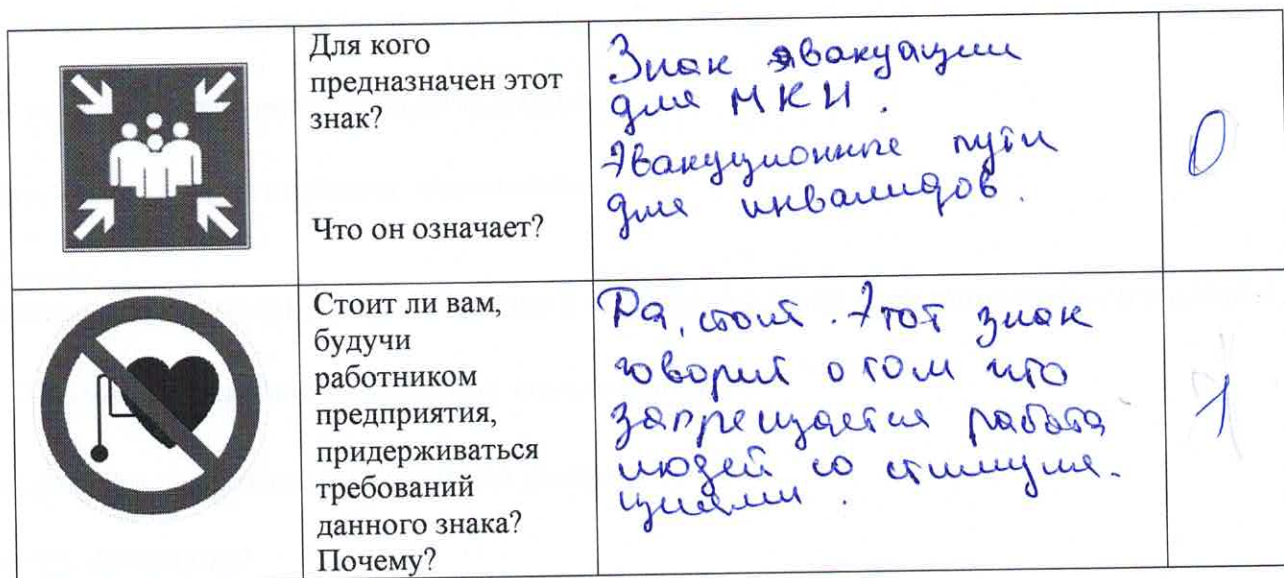 Для кого
предназначен этот
знак?
Что он означает?
Знак эвакуации
для МКН.
Эвакуционные пути
для инвалидов.
0
Стоит ли вам,
будучи
работником
предприятия,
придерживаться
требований
данного знака?
Почему?
Да, стоит. Этот знак
говорит о том что
запрещается работа
людей со стимуля-
циями.
1